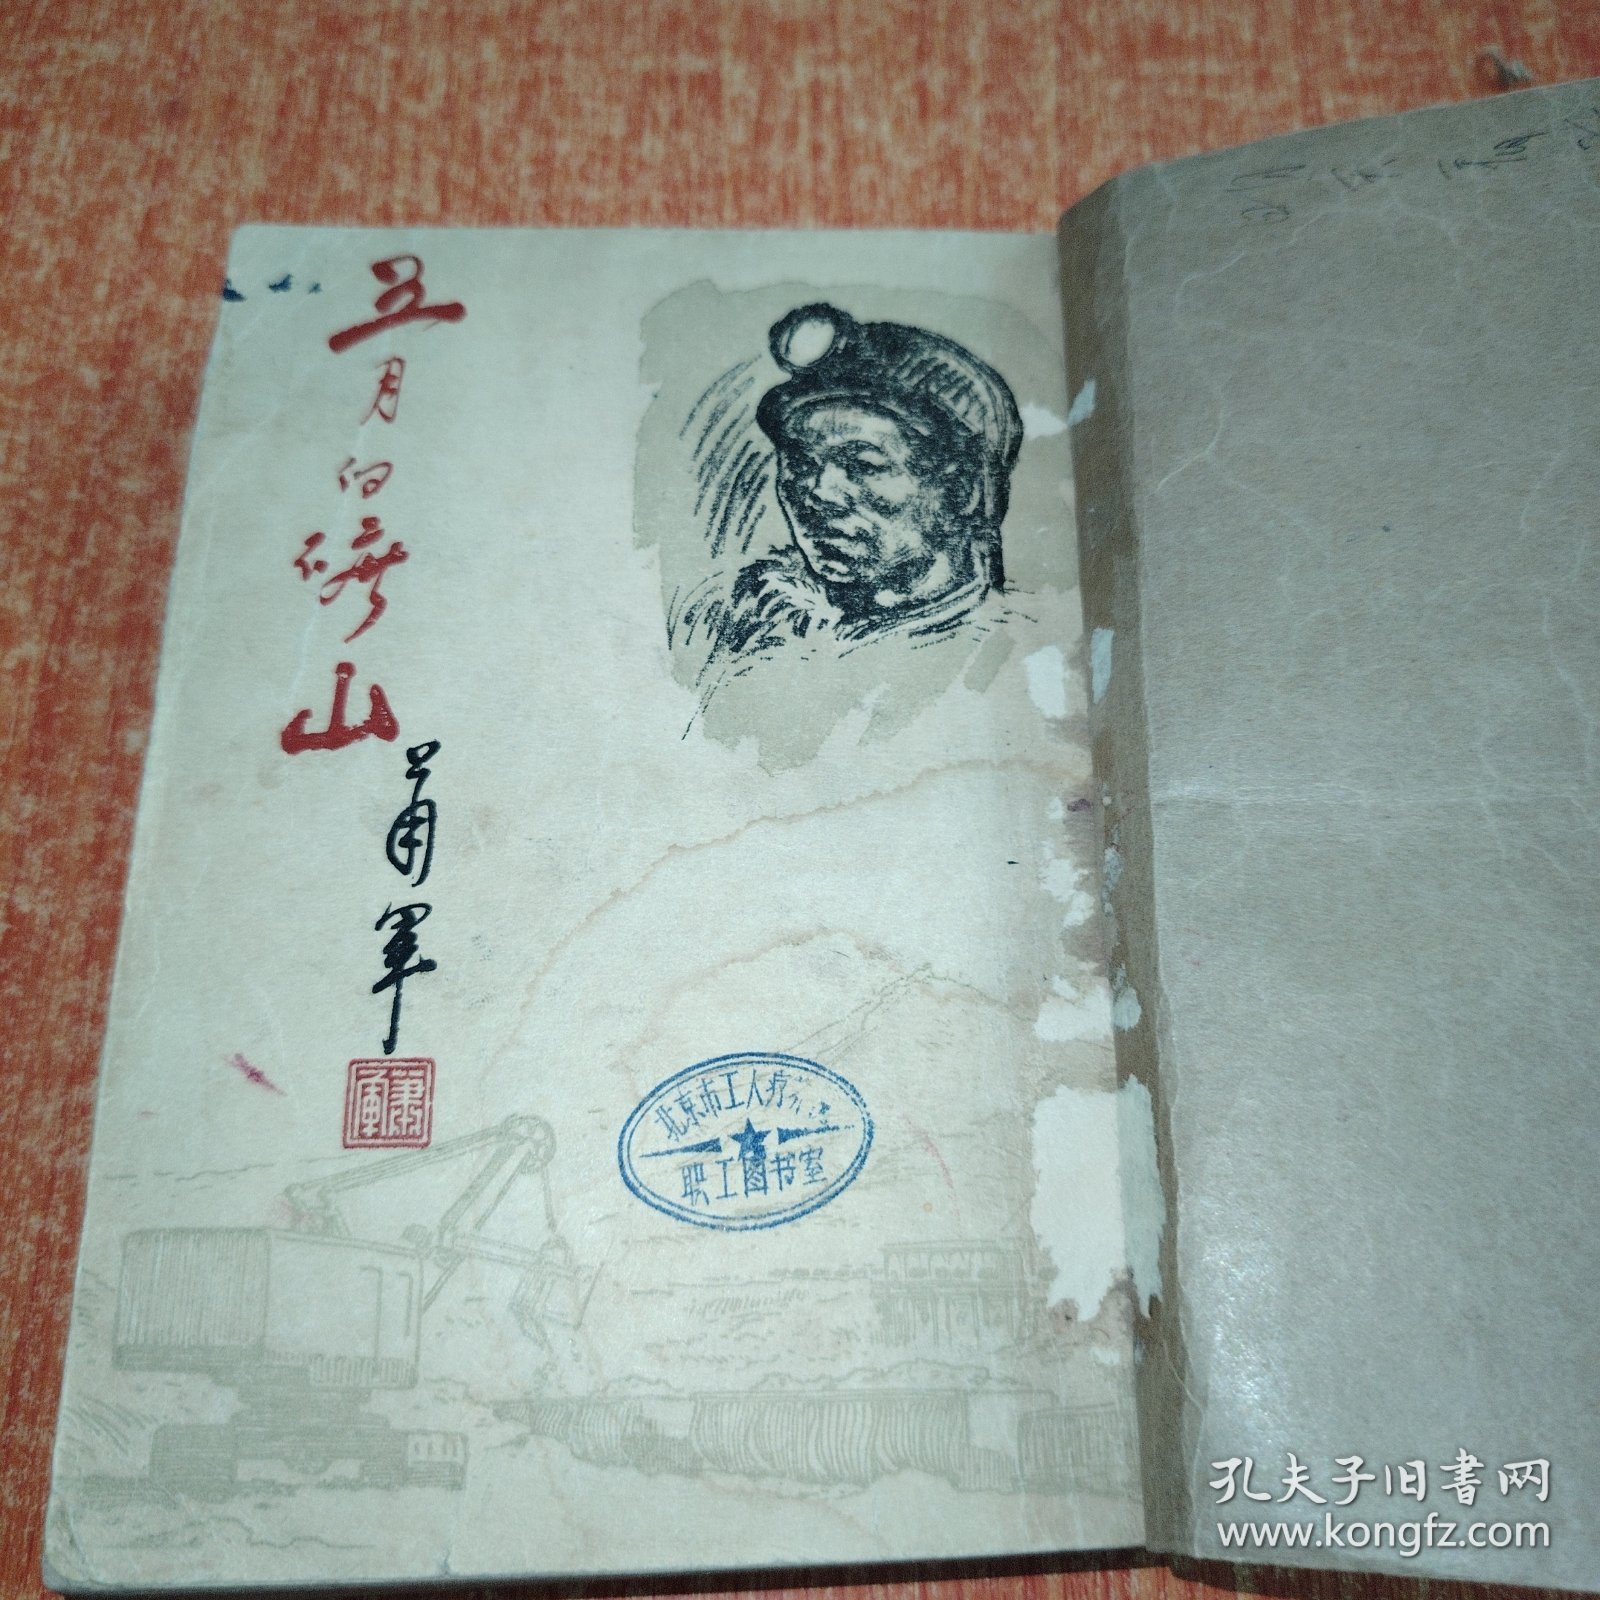 五月的礦山
蕭軍
蕭軍
北京市工人疗养院
职工图书室
孔夫子旧書网
www.kongfz.com